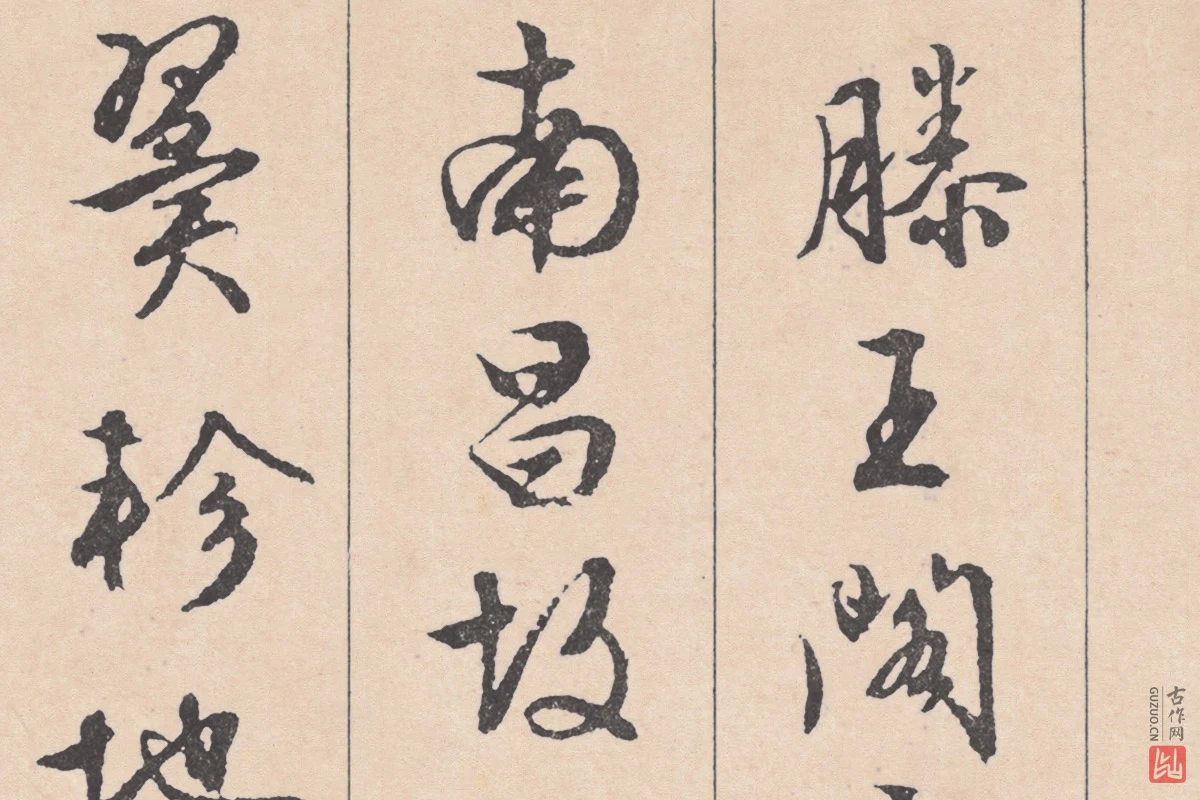 滕王阁
南昌故
翼轸地
古作网
GUZUO.CN